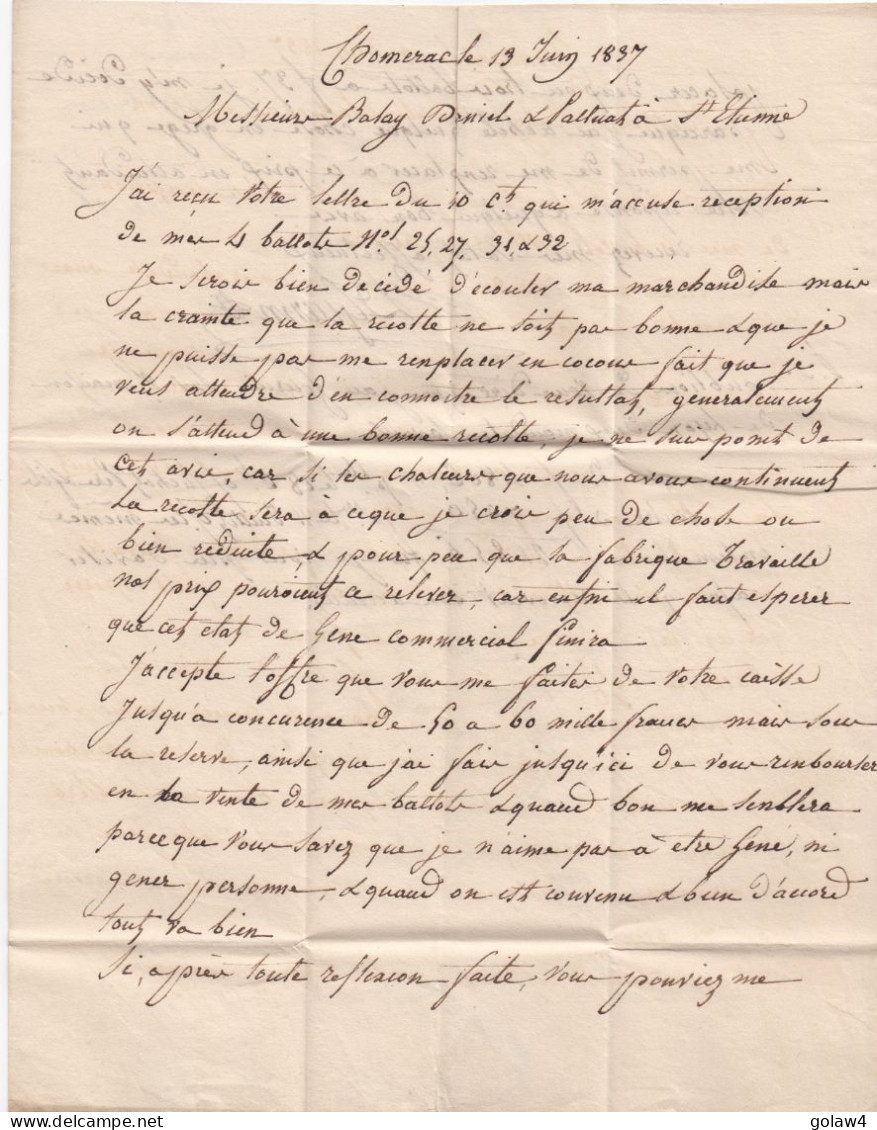 Chomerac le 13 Juin 1837
Messieurs Balay à St Etienne
J'ai reçu votre lettre du 10 ct qui m'accuse reception
de mes 4 ballots Nos 25, 27, 31, & 32
Je serois bien decidé d'écouler ma marchandise mais
la crainte que la recolte ne soit pas bonne & que je
ne puisse pas me renplacer en cocons fait que je
veus attendre d'en connoitre le resultat, generalement
on s'attend à une bonne recolte, je ne suis point de
cet avis, car si les chaleurs que nous avons continuent
La recolte sera à ceque je crois peu de chose ou
bien reduite, & pour peu que la fabrique travaille
nos prix pouroient ce relever, car enfin il faut esperer
que cet etat de Gene commercial finira
J'accepte l'offre que vous me faites de votre caisse
Jusqu'a concurence de 50 a 60 mille francs mais sous
la reserve, ainsi que j'ai fais jusquici de vous renbourser
en la vente de mes ballots & quand bon me senblera
parceque vous savez que je n'aime pas à etre Gené, ni
gener personne, & quand on est convenu & bien d'accord
tout va bien
Si, après toute reflexion faite, vous pouviez me
delcampe.net
golaw4